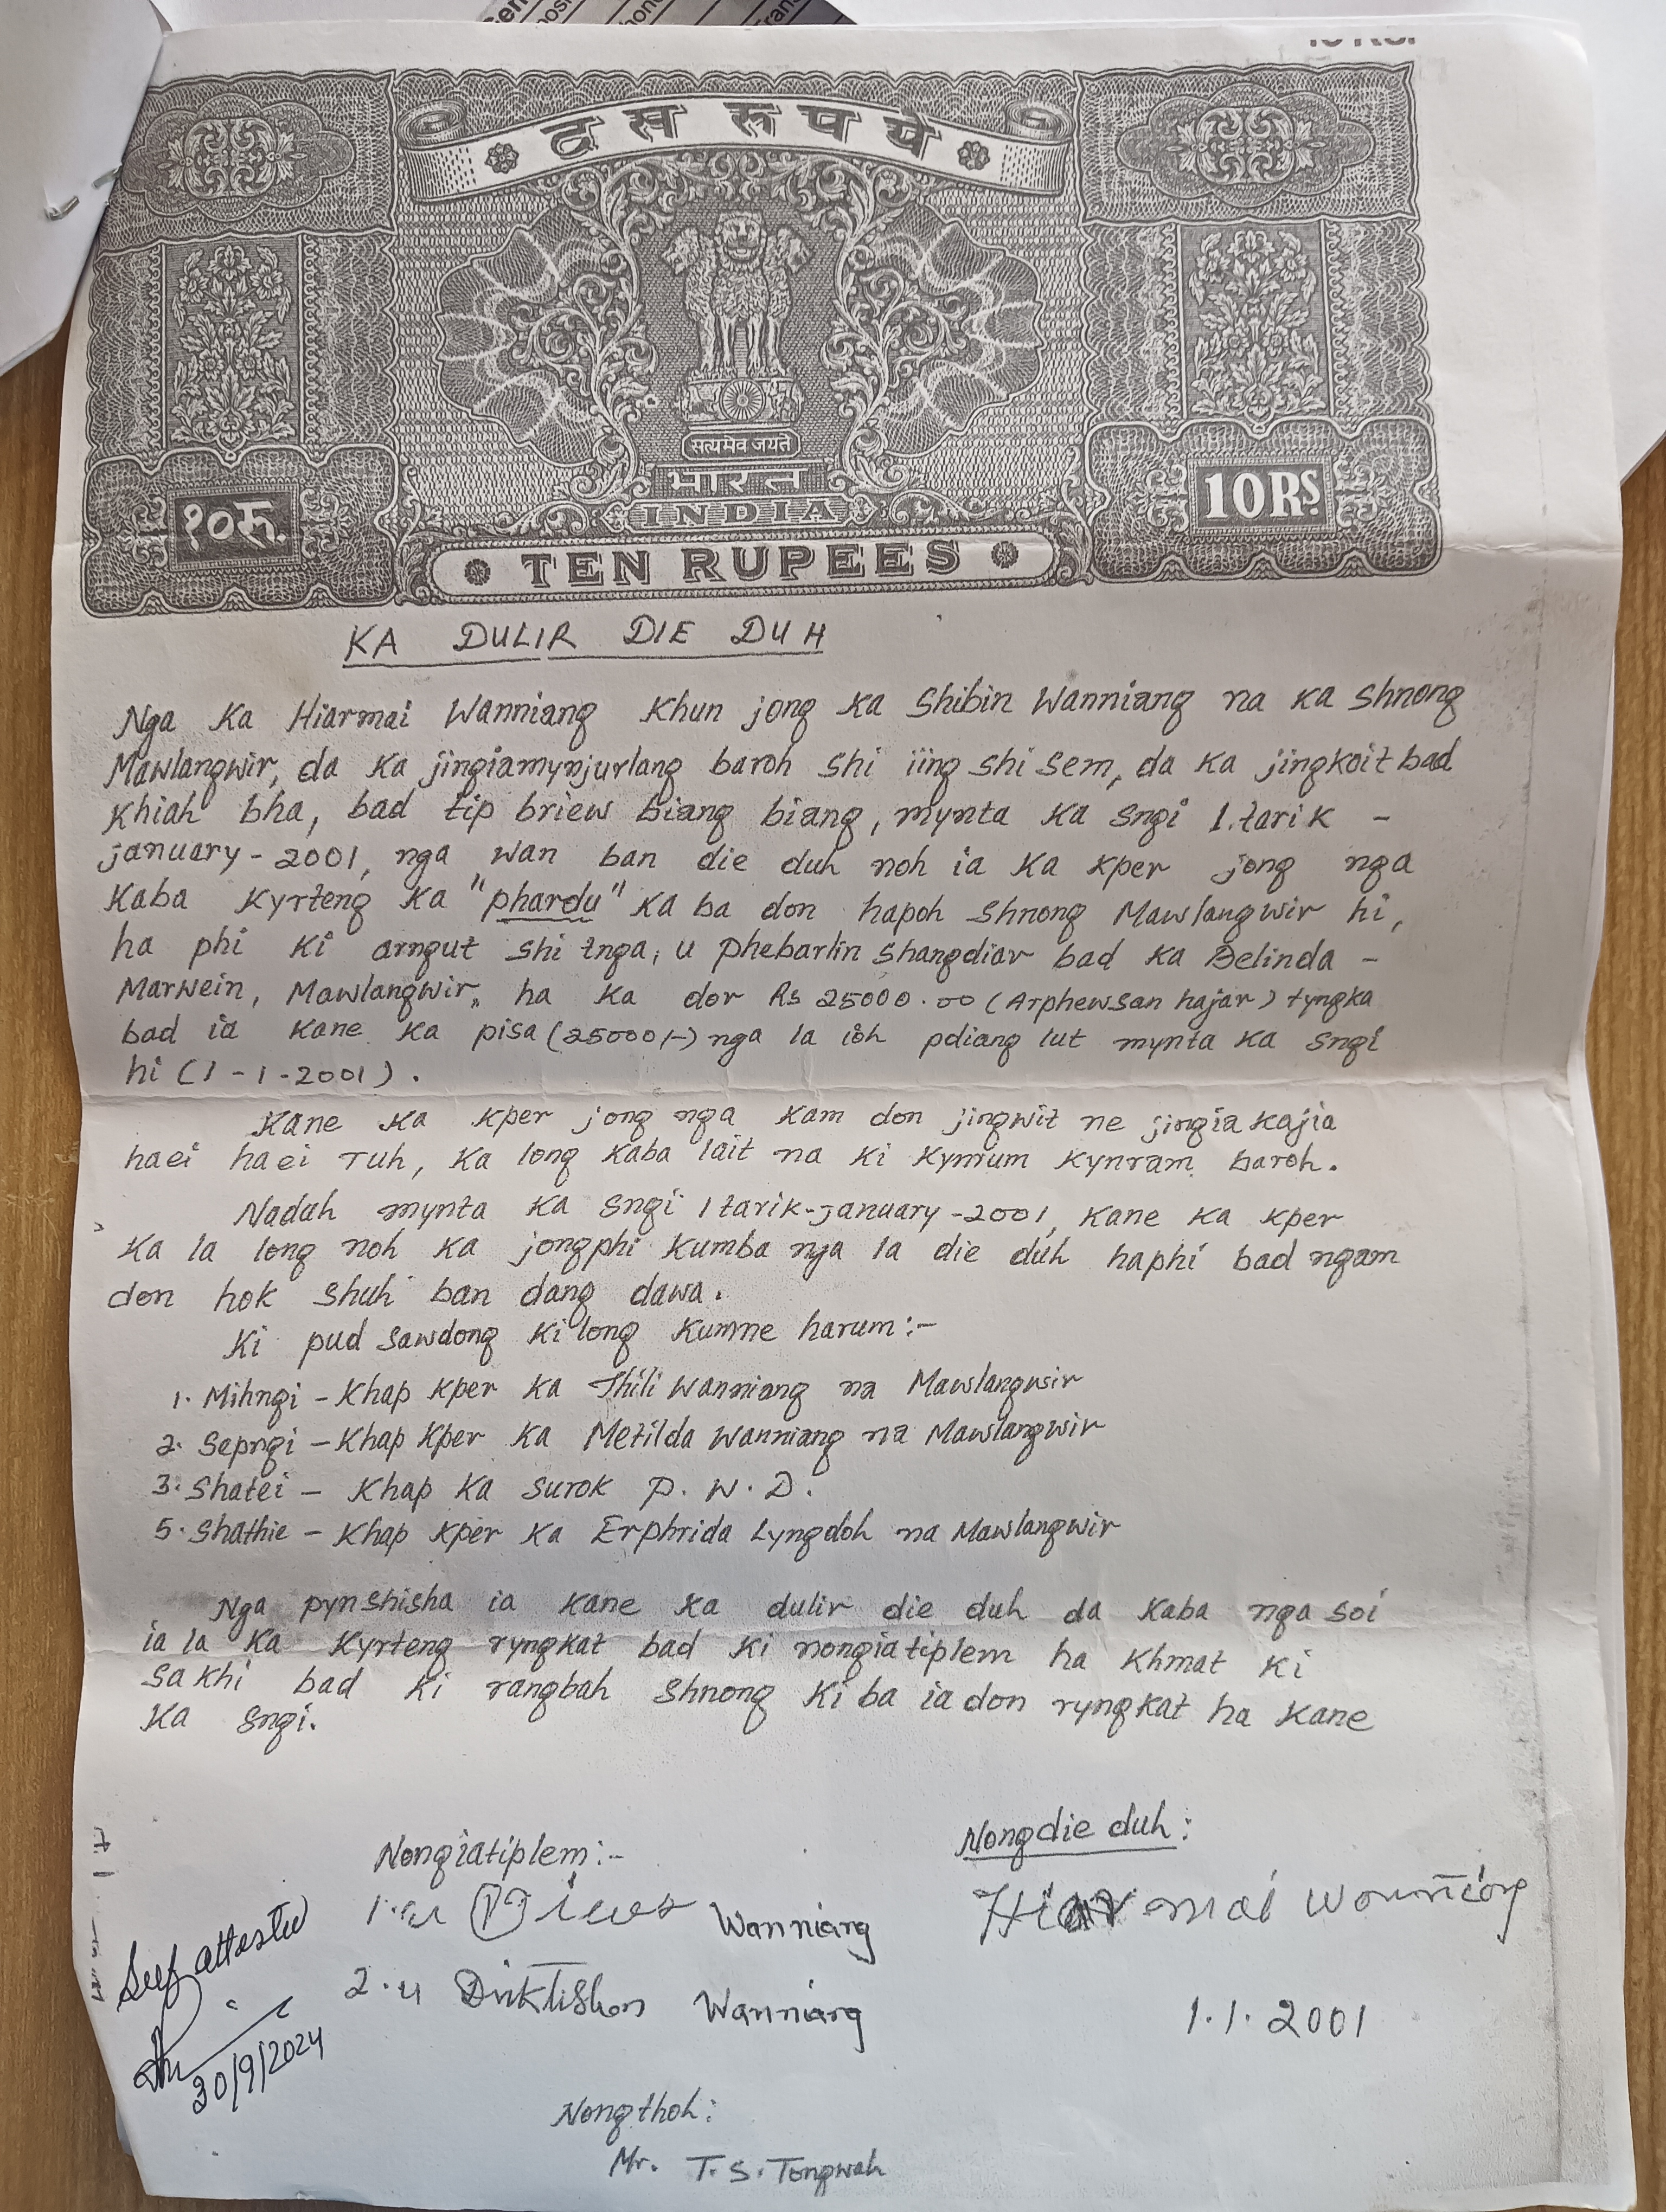 दस रुपये
सत्यमेव जयते
भारत
INDIA
१०रु.
10 Rs.
TEN RUPEES
KA DULIR DIE DUH
Nga Ka Hiarmai Wanniang Khun jong ka Shibin Wanniang na ka Shnong
Mawlangwir, da ka jingiamynjurlang baroh shi iing shi sem, da ka jingkoit bad
Khiah bha, bad tip briew biang biang, mynta ka sngi 1.tarik -
january - 2001, nga wan ban die duh noh ia ka kper jong nga
Kaba kyrteng ka "phardu" ka ba don hapoh shnong Mawlangwir hi,
ha phi ki arngut shi tnga, u Phebarlin Shangdiar bad ka Belinda -
Marwein, Mawlangwir, ha ka dor Rs 25000.00 (Arphewsan hajar) tyngka
bad ia kane ka pisa (25000/-) nga la ioh pdiang lut mynta ka sngi
hi (1-1-2001).
Kane ka kper jong nga kam don jingwit ne jingia kajia
haei haei ruh, ka long kaba lait na ki kynrum kynram baroh.
Naduh mynta ka sngi 1 tarik-january-2001, kane ka kper
ka la long noh ka jongphi kumba nga la die duh haphi bad ngam
don hok shuh ban dang dawa.
Ki pud sawdong ki long kumne harum:-
1. Mihngi - Khap kper ka Thili Wanniang na Mawlangwir
2. Sepngi - Khap kper ka Metilda Wanniang na Mawlangwir
3. Shatei - Khap ka surok P.W.D.
5. Shathie - Khap kper ka Erphrida Lyngdoh na Mawlangwir
Nga pynshisha ia kane ka dulir die duh da kaba nga soi
ia la ka kyrteng ryngkat bad ki nongiatiplem ha khmat ki
sakhi bad ki rangbah shnong ki ba ia don ryngkat ha kane
ka sngi.
Nongdie duh:
Hiarmai Wanniang
1.1.2001
Nongiatiplem:-
1. u Wanniang
2. u Driktishon Wanniang
Self attested
30/9/2024
Nongthoh:
Mr. T.S. Tongwah